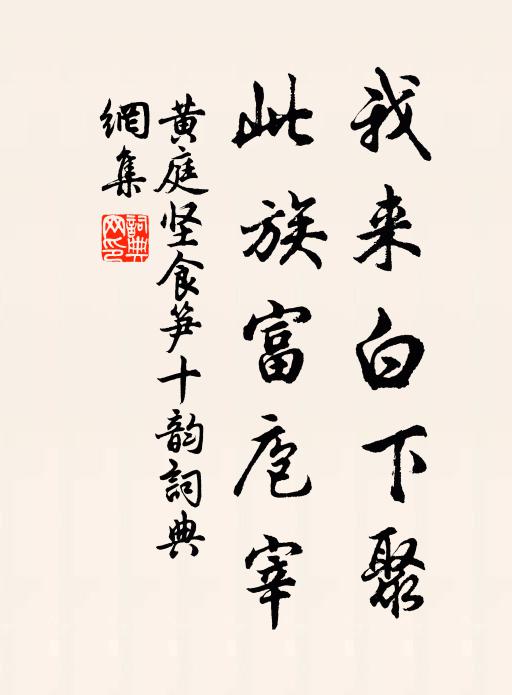 我来白下聚
此族富庖宰
黄庭坚食笋十韵詞典
網集
詞典
网印